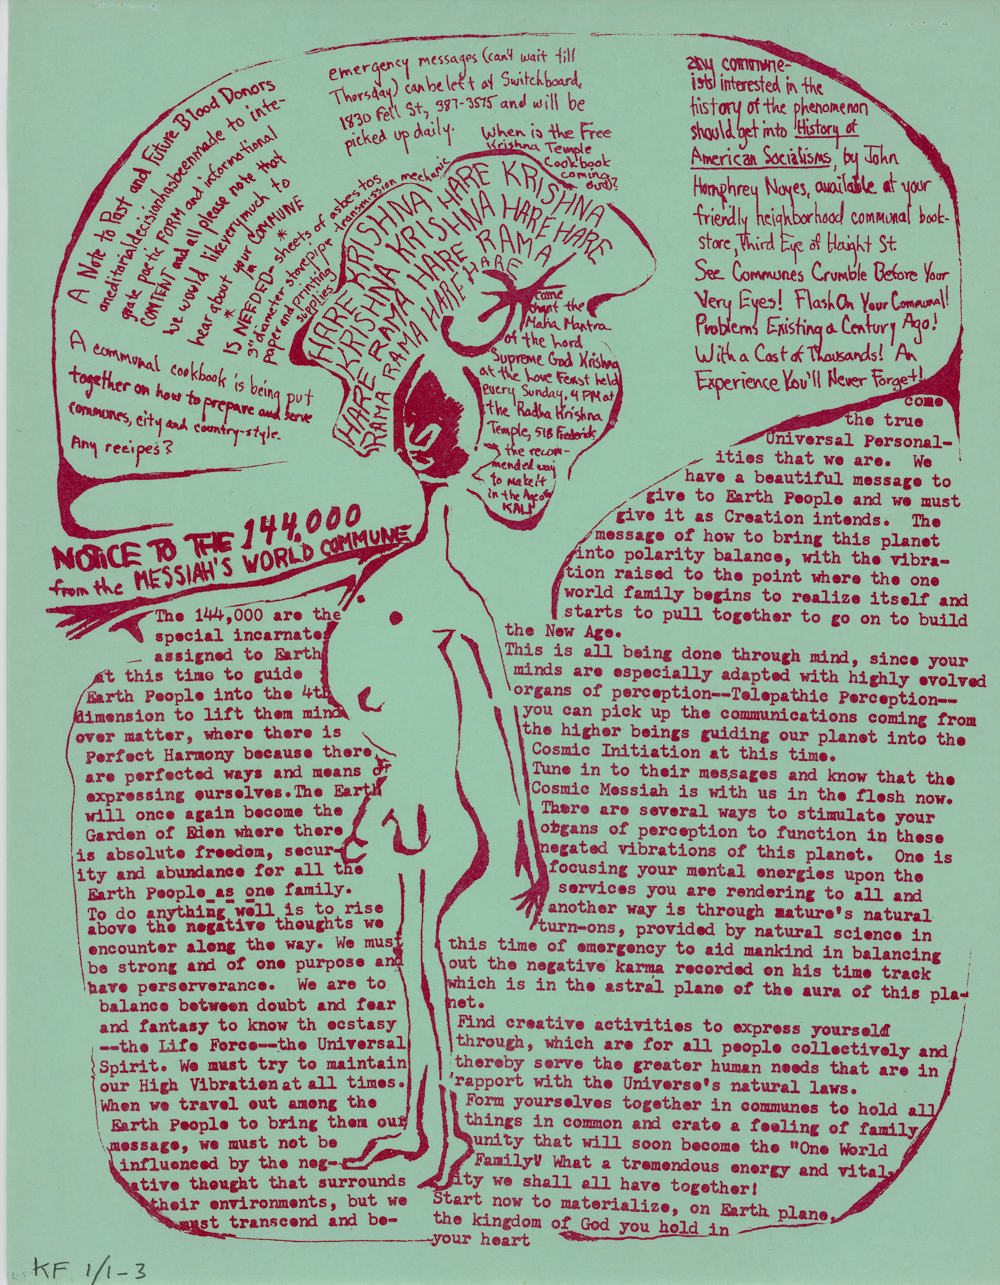 A Note to Past and Future Blood Donors
aneditorialdecisionhasbeenmade to inte-
grate poetic FORM and informational
CONTENT and all please note that
we would likeverymuch to
hear about your COMMUNE
* I'm *
IS NEEDED - sheets of asbestos
3" diameter stovepipe transmission mechanic
paper and printing
supplies
A communal cookbook is being put
together on how to prepare and serve
communes, city and country-style.
Any recipes?
emergency messages (can't wait till
Thursday) can be left at Switchboard,
1830 Fell St, 387-3575 and will be
picked up daily.
When is the Free
Krishna Temple
Cookbook
coming
out?
HARE KRISHNA HARE KRISHNA
KRISHNA KRISHNA HARE HARE
HARE RAMA HARE RAMA
RAMA RAMA HARE HARE
come
chant the
Maha Mantra
of the Lord
Supreme God Krishna
at the Love Feast held
every Sunday, 4 PM at
the Radha Krishna
Temple, 518 Frederick
the recom-
mended way
to make it
in the Age of
KALI
any commune-
ists interested in the
history of the phenomenon
should get into History of
American Socialisms, by John
Humphrey Noyes, available at your
friendly neighborhood communal book-
store, Third Eye of Haight St
See Communes Crumble Before Your
Very Eyes! Flash On Your Communal
Problems Existing a Century Ago!
With a Cast of Thousands! An
Experience You'll Never Forget!
NOTICE TO THE 144,000
from the MESSIAH'S WORLD COMMUNE
The 144,000 are the
special incarnates
assigned to Earth
at this time to guide
Earth People into the 4th
dimension to lift them mind
over matter, where there is
Perfect Harmony because there
are perfected ways and means of
expressing ourselves. The Earth
will once again become the
Garden of Eden where there
is absolute freedom, secur-
ity and abundance for all the
Earth People as one family.
To do anything well is to rise
above the negative thoughts we
encounter along the way. We must
be strong and of one purpose and
have perserverance. We are to
balance between doubt and fear
and fantasy to know th ecstasy
--the Life Force--the Universal
Spirit. We must try to maintain
our High Vibration at all times.
When we travel out among the
Earth People to bring them our
message, we must not be
influenced by the neg-
ative thought that surrounds
their environments, but we
must transcend and be-
come
the true
Universal Personal-
ities that we are. We
have a beautiful message to
give to Earth People and we must
give it as Creation intends. The
message of how to bring this planet
into polarity balance, with the vibra-
tion raised to the point where the one
world family begins to realize itself and
starts to pull together to go on to build
the New Age.
This is all being done through mind, since your
minds are especially adapted with highly evolved
organs of perception--Telepathic Perception--
you can pick up the communications coming from
the higher beings guiding our planet into the
Cosmic Initiation at this time.
Tune in to their messages and know that the
Cosmic Messiah is with us in the flesh now.
There are several ways to stimulate your
organs of perception to function in these
negated vibrations of this planet. One is
focusing your mental energies upon the
services you are rendering to all and
another way is through nature's natural
turn-ons, provided by natural science in
this time of emergency to aid mankind in balancing
out the negative karma recorded on his time track
which is in the astral plane of the aura of this pla-
net.
Find creative activities to express yourself
through, which are for all people collectively and
thereby serve the greater human needs that are in
rapport with the Universe's natural laws.
Form yourselves together in communes to hold all
things in common and crate a feeling of family
unity that will soon become the "One World
Family" What a tremendous energy and vital-
ity we shall all have together!
Start now to materialize, on Earth plane,
the kingdom of God you hold in
your heart
KF 1/1-3